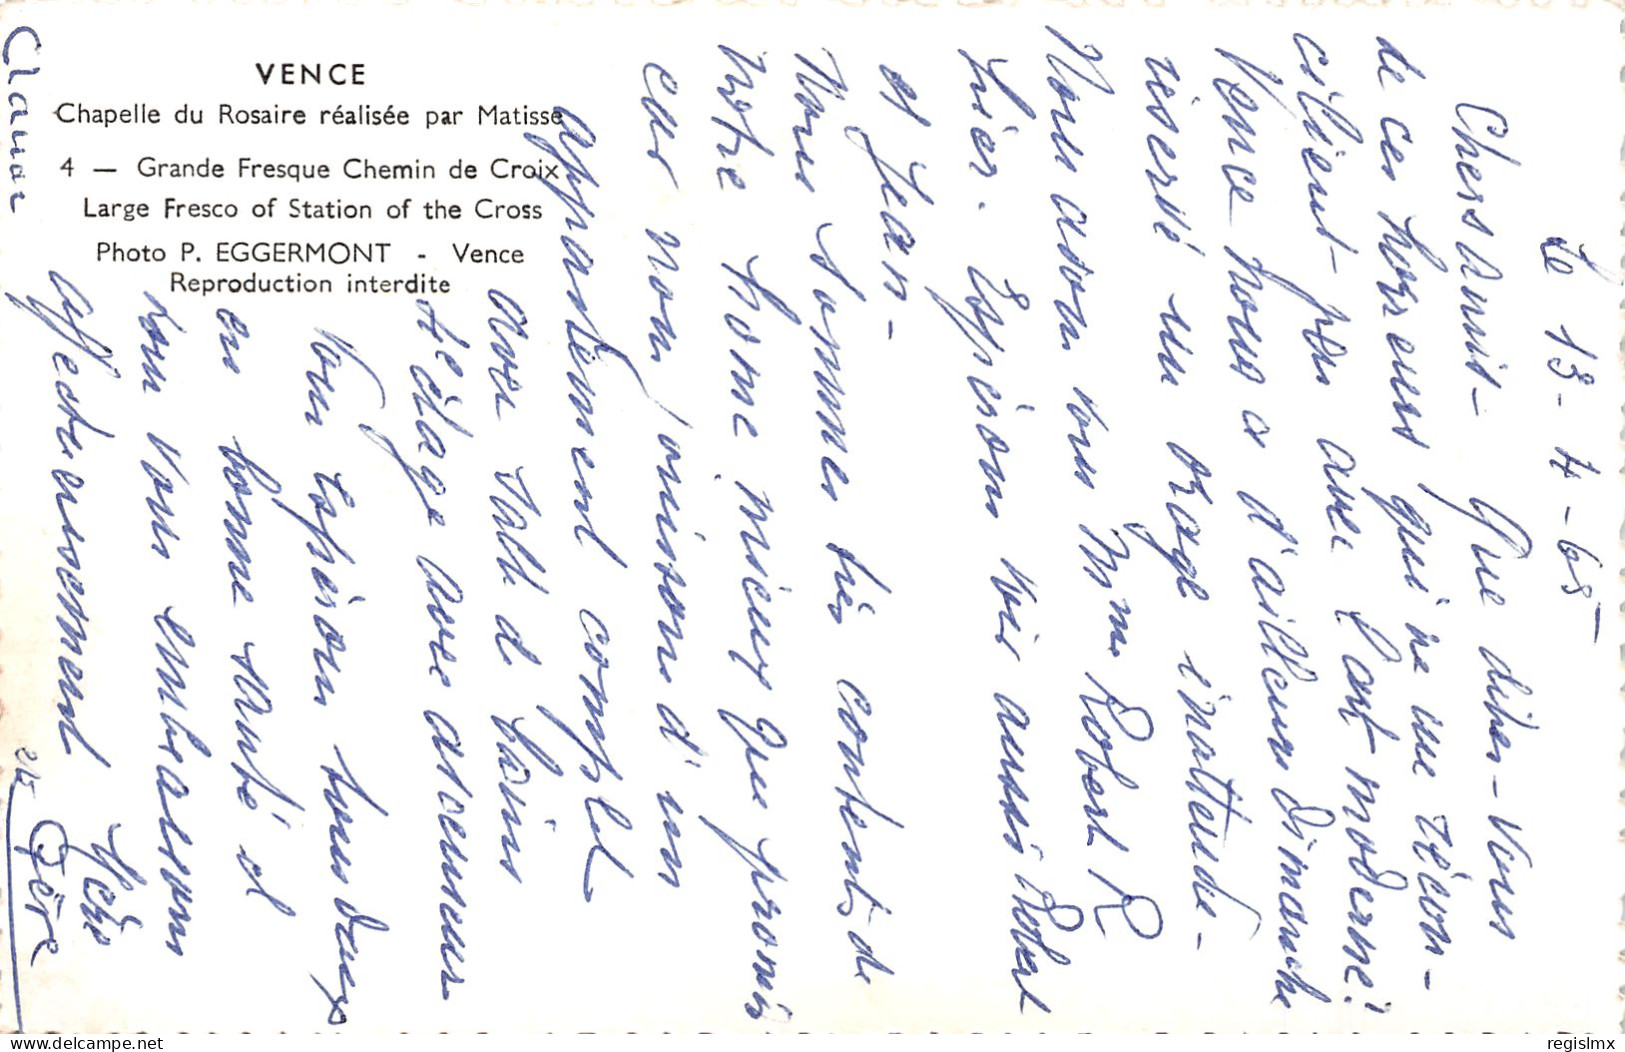 VENCE
Chapelle du Rosaire réalisée par Matisse
4 — Grande Fresque Chemin de Croix
Large Fresco of Station of the Cross
Photo P. EGGERMONT - Vence
Reproduction interdite
Le 13-4-65
Chers amis- Que dites-vous
de ces horreurs qui ne me récon-
cilient pas avec l'art moderne!
Vence nous a d'ailleurs Dimanche
réservé un orage inattendu-
Nous avons vu Mme Robert R
hier. Espérons voir aussi Robert
et Jean-
Nous sommes très contents de
notre home mieux que promis
car nous jouissons d'un
appartement complet
avec salle de bains
2è étage avec ascenseur
Nous espérons tous deux
en bonne santé et
vous embrassons
affectueusement